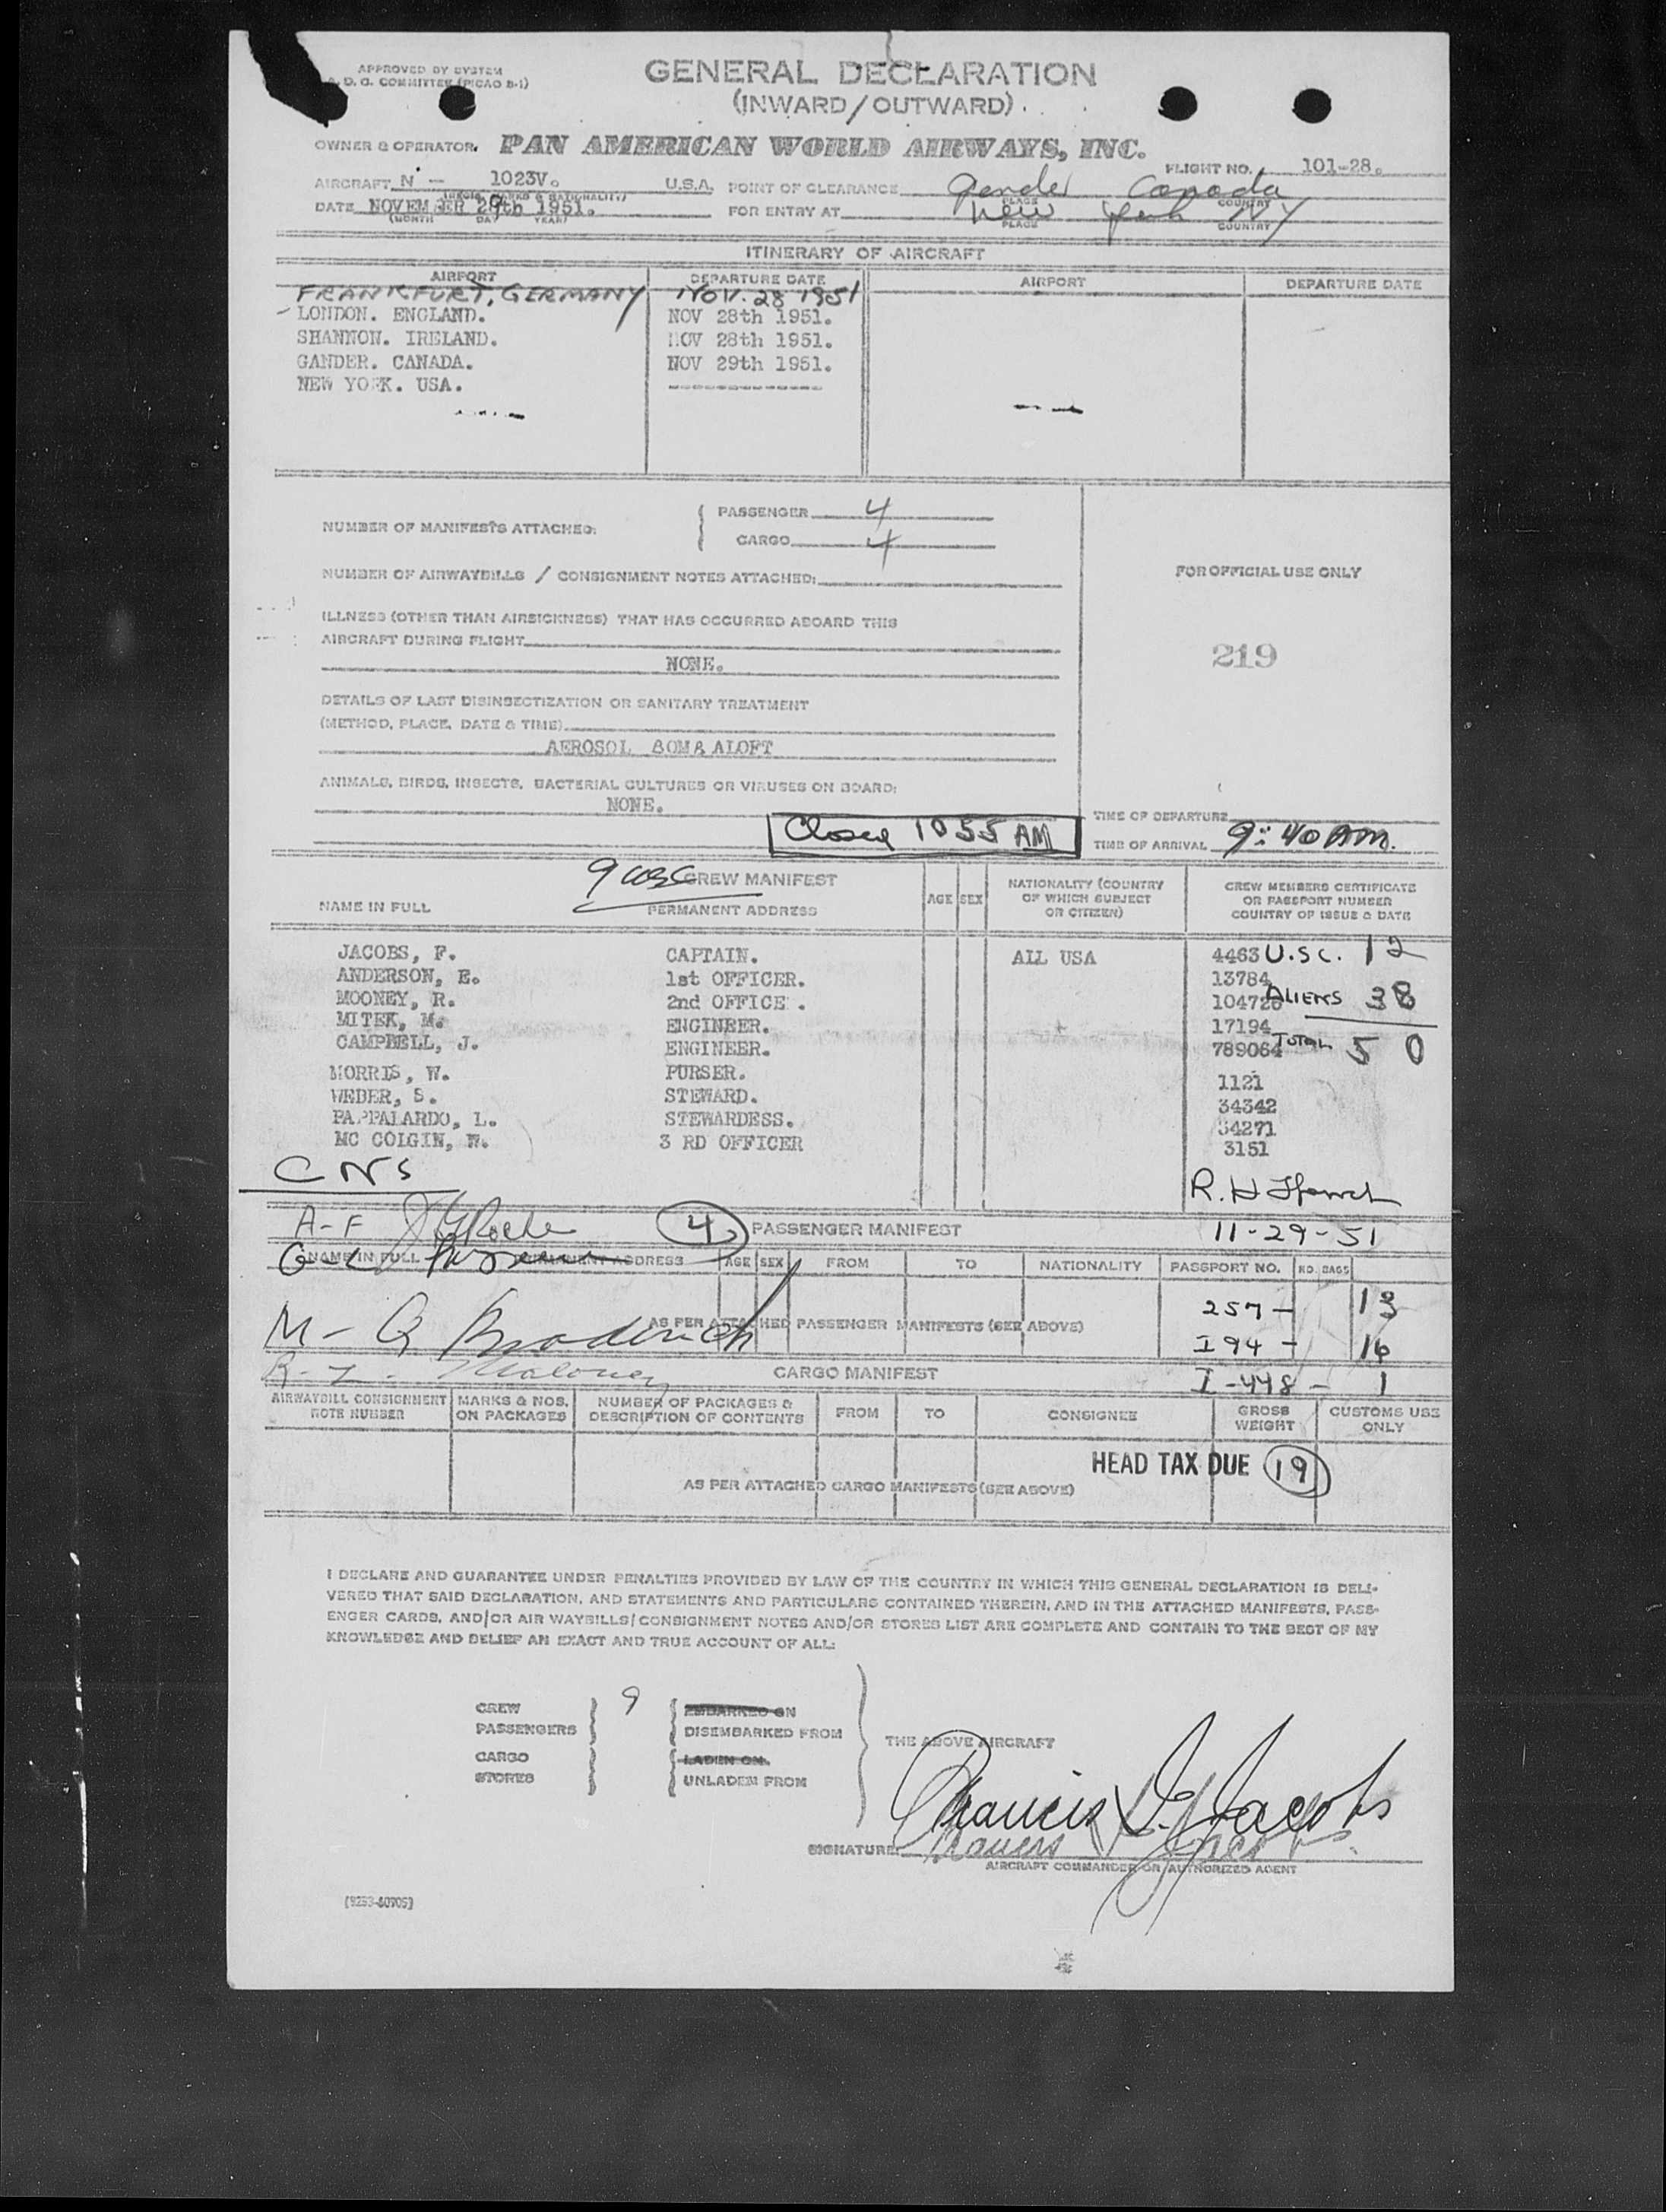 APPROVED BY SYSTEM
D. O. COMMITTEE (PICAO B-1)
GENERAL DECLARATION
(INWARD/OUTWARD)
OWNER & OPERATOR. PAN AMERICAN WORLD AIRWAYS, INC.
FLIGHT NO. 101-28.
AIRCRAFT N - 1023V. U.S.A. POINT OF CLEARANCE Gander Canada
(REGIS. MARKS & NATIONALITY) PLACE COUNTRY
DATE NOVEMBER 29th 1951. FOR ENTRY AT New York NY
(MONTH DAY YEAR) PLACE COUNTRY
ITINERARY OF AIRCRAFT
AIRPORT DEPARTURE DATE AIRPORT DEPARTURE DATE
FRANKFURT, GERMANY NOV. 28 1951
LONDON. ENGLAND. NOV 28th 1951.
SHANNON. IRELAND. NOV 28th 1951.
GANDER. CANADA. NOV 29th 1951.
NEW YORK. USA. -------------
NUMBER OF MANIFESTS ATTACHED:
PASSENGER 4
CARGO 4
NUMBER OF AIRWAYBILLS / CONSIGNMENT NOTES ATTACHED:
FOR OFFICIAL USE ONLY
ILLNESS (OTHER THAN AIRSICKNESS) THAT HAS OCCURRED ABOARD THIS
AIRCRAFT DURING FLIGHT
NONE.
219
DETAILS OF LAST DISINSECTIZATION OR SANITARY TREATMENT
(METHOD, PLACE, DATE & TIME)
AEROSOL BOMB ALOFT
ANIMALS, BIRDS, INSECTS, BACTERIAL CULTURES OR VIRUSES ON BOARD:
NONE.
Closed 1055 AM
TIME OF DEPARTURE
TIME OF ARRIVAL 9:40 AM.
9 USC CREW MANIFEST
NAME IN FULL PERMANENT ADDRESS AGE SEX NATIONALITY (COUNTRY OF WHICH SUBJECT OR CITIZEN) CREW MEMBERS CERTIFICATE OR PASSPORT NUMBER COUNTRY OF ISSUE & DATE
JACOBS, F. CAPTAIN. ALL USA 4463 U.S.C. 12
ANDERSON, E. 1st OFFICER. 13784
MOONEY, R. 2nd OFFICE . 104726 ALIENS 38
MITEK, M. ENGINEER. 17194
CAMPBELL, J. ENGINEER. 789064 TOTAL 50
MORRIS, W. PURSER. 1121
WEBER, S. STEWARD. 34342
PAPPALARDO, L. STEWARDESS. 34271
MC COLGIN, W. 3 RD OFFICER 3151
CNS
R.H.
A-F J Roche 4 PASSENGER MANIFEST 11-29-51
G-L
NAME IN FULL PERMANENT ADDRESS AGE SEX FROM TO NATIONALITY PASSPORT NO. NO. BAGS
257 - 13
M-Q Broderick AS PER ATTACHED PASSENGER MANIFESTS (SEE ABOVE)
I 94 - 16
R-Z Maloney CARGO MANIFEST I-448 - 1
AIRWAYBILL CONSIGNMENT NOTE NUMBER MARKS & NOS. ON PACKAGES NUMBER OF PACKAGES & DESCRIPTION OF CONTENTS FROM TO CONSIGNEE GROSS WEIGHT CUSTOMS USE ONLY
HEAD TAX DUE 19
AS PER ATTACHED CARGO MANIFESTS (SEE ABOVE)
I DECLARE AND GUARANTEE UNDER PENALTIES PROVIDED BY LAW OF THE COUNTRY IN WHICH THIS GENERAL DECLARATION IS DELI-
VERED THAT SAID DECLARATION, AND STATEMENTS AND PARTICULARS CONTAINED THEREIN, AND IN THE ATTACHED MANIFESTS, PASS-
ENGER CARDS, AND/OR AIR WAYBILLS/CONSIGNMENT NOTES AND/OR STORES LIST ARE COMPLETE AND CONTAIN TO THE BEST OF MY
KNOWLEDGE AND BELIEF AN EXACT AND TRUE ACCOUNT OF ALL:
CREW 9 EMBARKED ON
PASSENGERS DISEMBARKED FROM
THE ABOVE AIRCRAFT
CARGO LADEN ON.
STORES UNLADEN FROM
Francis J. Jacobs
SIGNATURE: Francis Jacobs
AIRCRAFT COMMANDER OR AUTHORIZED AGENT
(9253-60705)